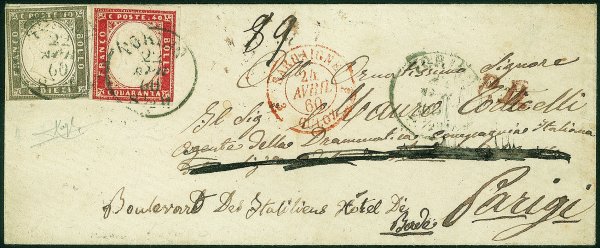 C. POSTE 10
FRANCO
BOLLO
DIECI
C. POSTE 40
FRANCO
BOLLO
C. QUARANTA
22
60
89
SARDAIGNE
24
AVRIL
60
P.D.
Signore
Il Sig Mauro Corticelli
Agente della Drammatica Compagnia Italiana
Boulevard Des Italiens Hôtel De
Bade
Parigi